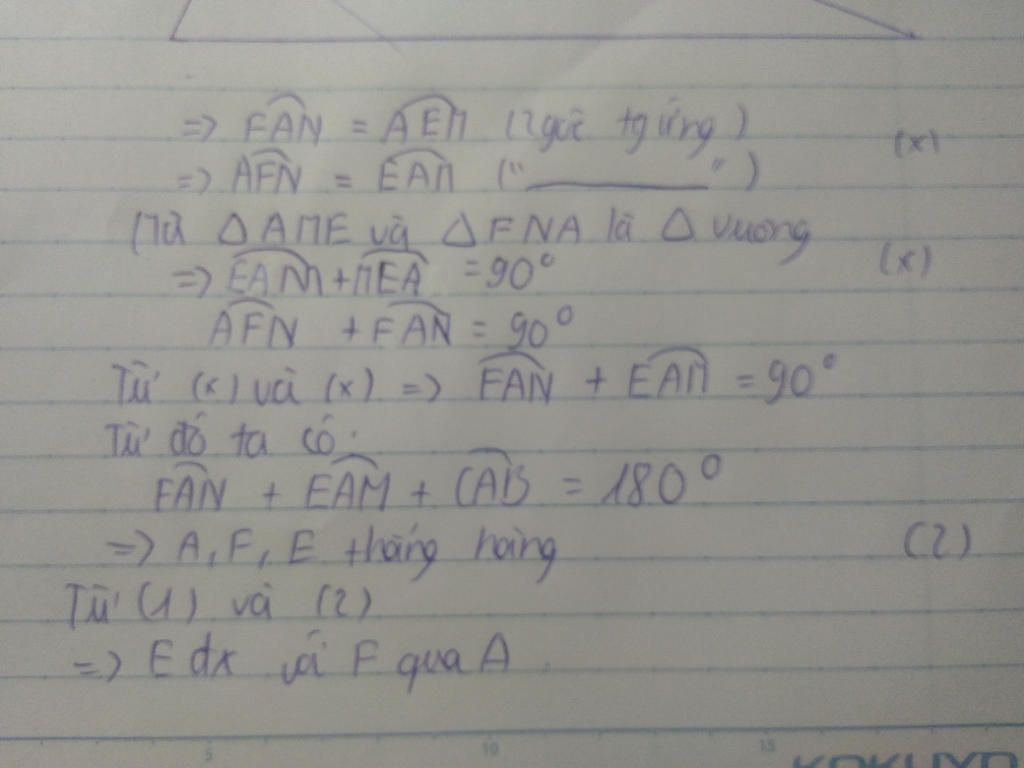 => FAN = AEM (2 góc tg ứng)
(x)
=> AFN = EAM ("_______")
Mà △AME và △FNA là △ vuong
=> EAM + MEA = 90°
(x)
AFN + FAN = 90°
Từ (x) và (x) => FAN + EAM = 90°
Từ đó ta có:
FAN + EAM + CAB = 180°
=> A, F, E thẳng hàng
(2)
Từ (1) và (2)
=> E đx với F qua A.
5 10 15
KOKUYO